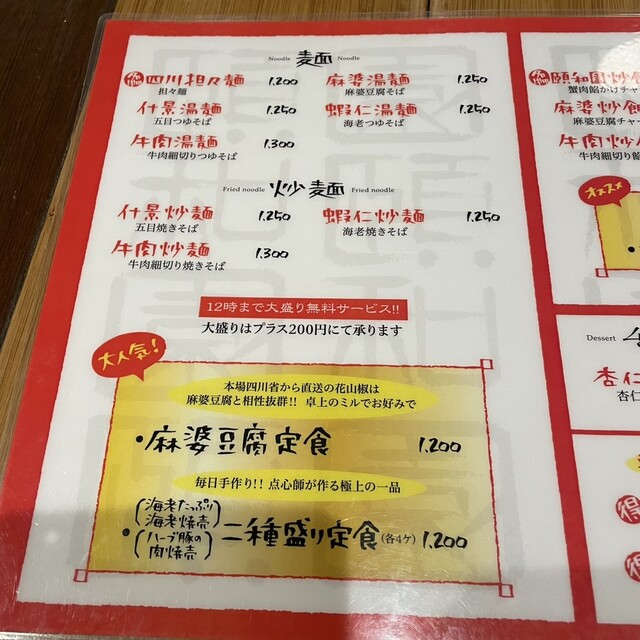 Noodle 麺 Noodle
四川担々麺 1.200
担々麺
麻婆湯麺 1.250
麻婆豆腐そば
什景湯麺 1.250
五目つゆそば
蝦仁湯麺 1.250
海老つゆそば
牛肉湯麺 1.300
牛肉細切りつゆそば
Fried noodle 炒麺 Fried noodle
什景炒麺 1.250
五目焼きそば
蝦仁炒麺 1.250
海老焼きそば
牛肉炒麺 1.300
牛肉細切り焼きそば
12時まで大盛り無料サービス!!
大盛りはプラス200円にて承ります
大人気!
本場四川省から直送の花山椒は
麻婆豆腐と相性抜群!! 卓上のミルでお好みで
・麻婆豆腐定食 1.200
毎日手作り!! 点心師が作る極上の一品
・(海老たっぷり海老焼売)(ハーブ豚の肉焼売)二種盛り定食(各4ケ) 1.200
頤和園炒
蟹肉餡かけチャー
麻婆炒
麻婆豆腐チャー
牛肉炒
牛肉細切り
オススメ
Dessert
杏仁
杏仁
得
得